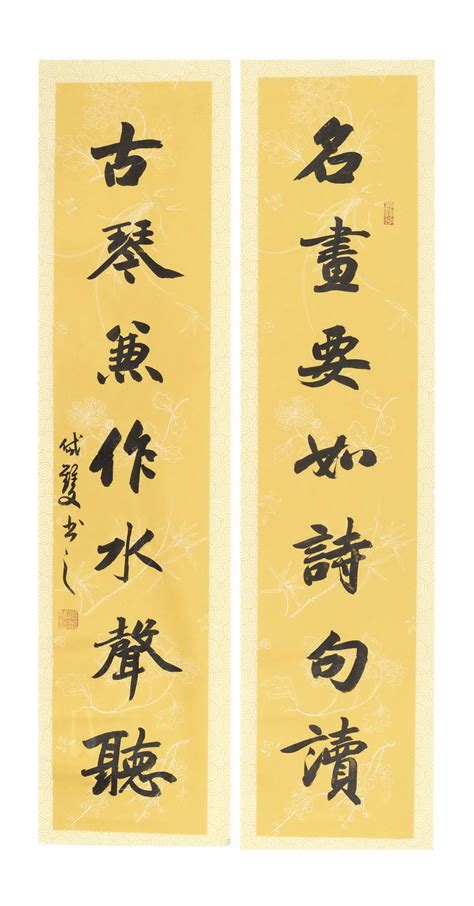 名畫要如詩句讀
古琴兼作水聲聽
雙書之